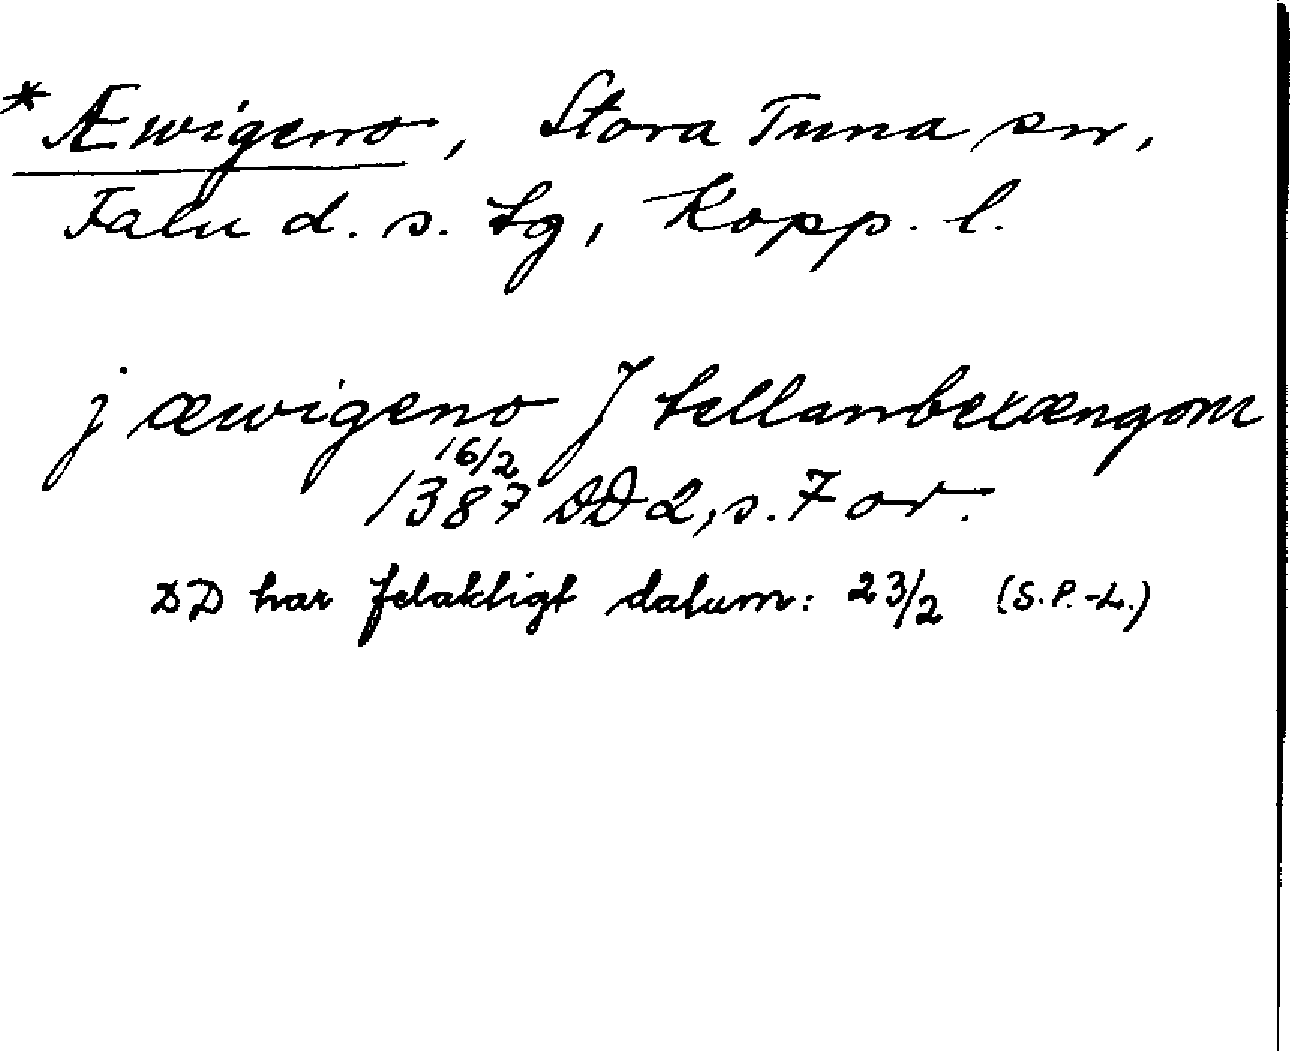 * Æwigeno, Stora Tuna sn,
Falu d. s. tg, Kopp. l.
j æwigeno J tællanbexængom
16/2
1387 DD 2, s. 7 or.
DD har felaktigt datum: 23/2 (S.P.-L.)